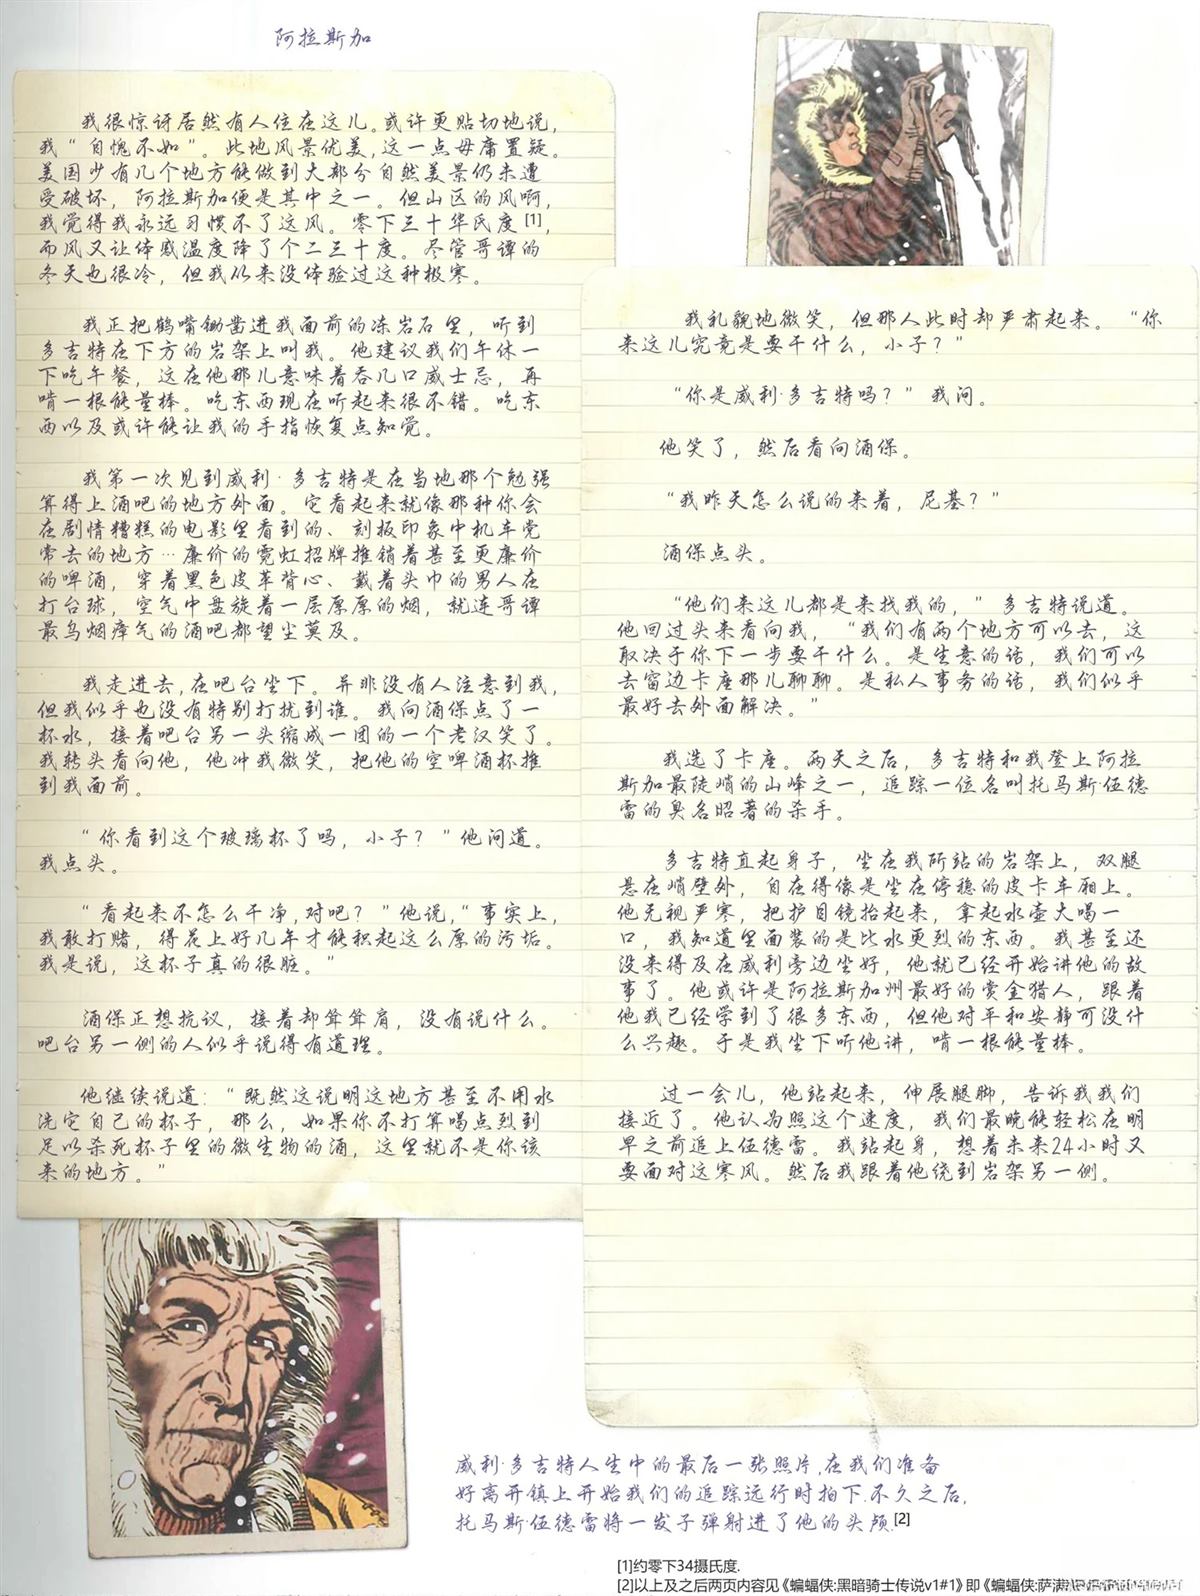 阿拉斯加
我很惊讶居然有人住在这儿。或许更贴切地说，
我“自愧不如”。此地风景优美，这一点毋庸置疑。
美国少有几个地方能做到大部分自然美景仍未遭
受破坏，阿拉斯加便是其中之一。但山区的风啊，
我觉得我永远习惯不了这风。零下三十华氏度[1]，
而风又让体感温度降了个二三十度。尽管哥谭的
冬天也很冷，但我从来没体验过这种极寒。
我正把鹤嘴锄凿进我面前的冻岩石里，听到
多吉特在下方的岩架上叫我。他建议我们午休一
下吃午餐，这在他那儿意味着吞几口威士忌，再
啃一根能量棒。吃东西现在听起来很不错。吃东
西以及或许能让我的手指恢复点知觉。
我第一次见到威利·多吉特是在当地那个勉强
算得上酒吧的地方外面。它看起来就像那种你会
在剧情糟糕的电影里看到的、刻板印象中机车党
常去的地方…廉价的霓虹招牌推销着甚至更廉价
的啤酒，穿着黑色皮革背心、戴着头巾的男人在
打台球，空气中盘旋着一层厚厚的烟，就连哥谭
最乌烟瘴气的酒吧都望尘莫及。
我走进去，在吧台坐下。并非没有人注意到我，
但我似乎也没有特别打扰到谁。我向酒保点了一
杯水，接着吧台另一头缩成一团的一个老汉笑了。
我转头看向他，他冲我微笑，把他的空啤酒杯推
到我面前。
“你看到这个玻璃杯了吗，小子？”他问道。
我点头。
“看起来不怎么干净，对吧？”他说，“事实上，
我敢打赌，得花上好几年才能积起这么厚的污垢。
我是说，这杯子真的很脏。”
酒保正想抗议，接着却耸耸肩，没有说什么。
吧台另一侧的人似乎说得有道理。
他继续说道：“既然这说明这地方甚至不用水
洗它自己的杯子，那么，如果你不打算喝点烈到
足以杀死杯子里的微生物的酒，这里就不是你该
来的地方。”
我礼貌地微笑，但那人此时却严肃起来。“你
来这儿究竟是要干什么，小子？”
“你是威利·多吉特吗？”我问。
他笑了，然后看向酒保。
“我昨天怎么说的来着，尼基？”
酒保点头。
“他们来这儿都是来找我的，”多吉特说道。
他回过头来看向我，“我们有两个地方可以去，这
取决于你下一步要干什么。是生意的话，我们可以
去窗边卡座那儿聊聊。是私人事务的话，我们似乎
最好去外面解决。”
我选了卡座。两天之后，多吉特和我登上阿拉
斯加最陡峭的山峰之一，追踪一位名叫托马斯·伍德
雷的臭名昭著的杀手。
多吉特直起身子，坐在我所站的岩架上，双腿
悬在峭壁外，自在得像是坐在停稳的皮卡车厢上。
他无视严寒，把护目镜抬起来，拿起水壶大喝一
口，我知道里面装的是比水更烈的东西。我甚至还
没来得及在威利旁边坐好，他就已经开始讲他的故
事了。他或许是阿拉斯加州最好的赏金猎人，跟着
他我已经学到了很多东西，但他对平和安静可没什
么兴趣。于是我坐下听他讲，啃一根能量棒。
过一会儿，他站起来，伸展腿脚，告诉我我们
接近了。他认为照这个速度，我们最晚能轻松在明
早之前追上伍德雷。我站起身，想着未来24小时又
要面对这寒风。然后我跟着他绕到岩架另一侧。
威利·多吉特人生中的最后一张照片，在我们准备
好离开镇上开始我们的追踪远行时拍下.不久之后，
托马斯·伍德雷将一发子弹射进了他的头颅.[2]
[1]约零下34摄氏度.
[2]以上及之后两页内容见《蝙蝠侠:黑暗骑士传说v1#1》即《蝙蝠侠:萨满》